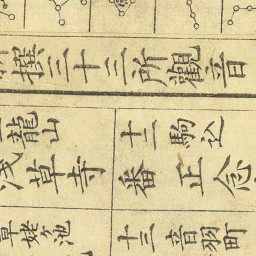 撰三十三所觀音
龍山
浅草寺
十二 駒込
番 正念
草姥ヶ池
十三 音羽町